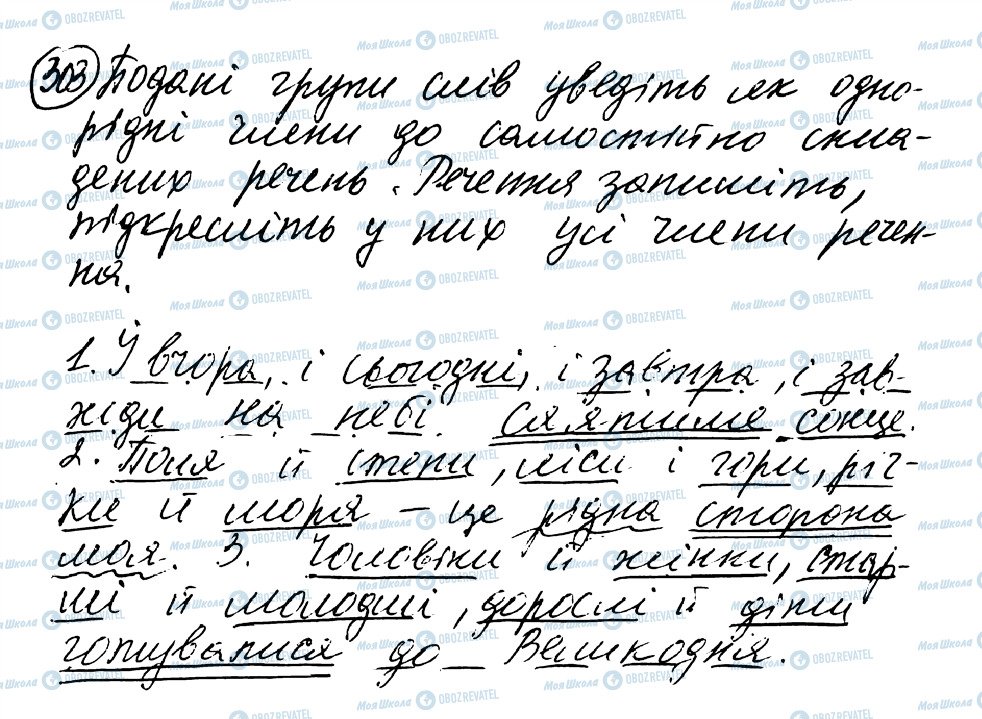 303 Подані групи слів уведіть як одно-
рідні члени до самостійно скла-
дених речень. Речення запишіть,
підкресліть у них усі члени речен-
ня.
1. Й вчора, і сьогодні, і завтра, і зав-
жди на небі сяятиме сонце.
2. Поля й степи, ліси і гори, річ-
ки й моря – це рідна сторона
моя. 3. Чоловіки й жінки, стар-
ші й молодші, дорослі й діти
готувалися до Великодня.
Моя Школа OBOZREVATEL